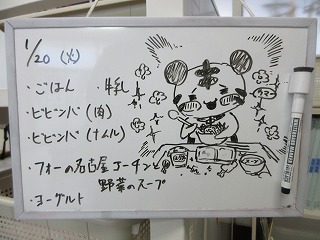 1/20 (火)
・ごはん ・牛乳
・ビビンバ (肉)
・ビビンバ (ナムル)
・フォーの名古屋コーチンと
野菜のスープ
・ヨーグルト